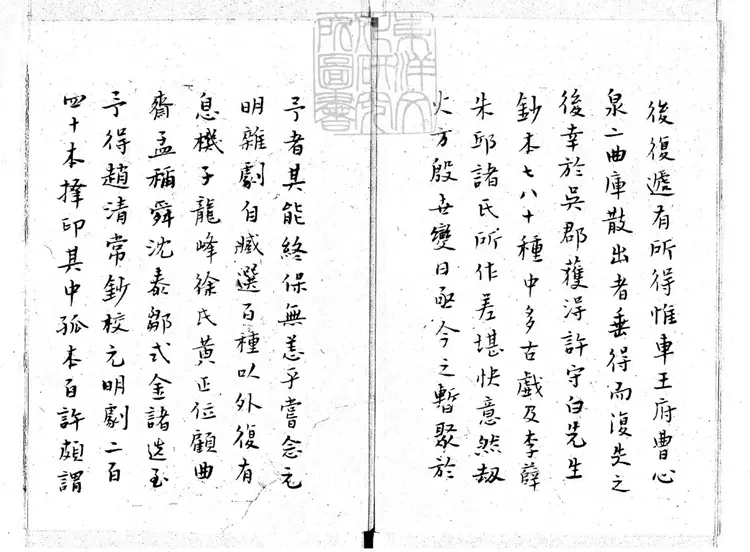 後復遞有所得惟車王府曹心
泉二曲庫散出者垂得而復失之
後幸於吳郡獲得許守白先生
鈔本七八十種中多古戲及李薛
朱邱諸氏所作差堪快意然刼
火方殷世變日亟今之暫聚於
予者其能終保無恙乎嘗念元
明雜劇自臧選百種以外復有
息機子龍峰徐氏黃正位顧曲
齋孟稱舜沈泰鄒式金諸選至
予得趙清常鈔校元明劇二百
四十本擇印其中孤本百許頗謂